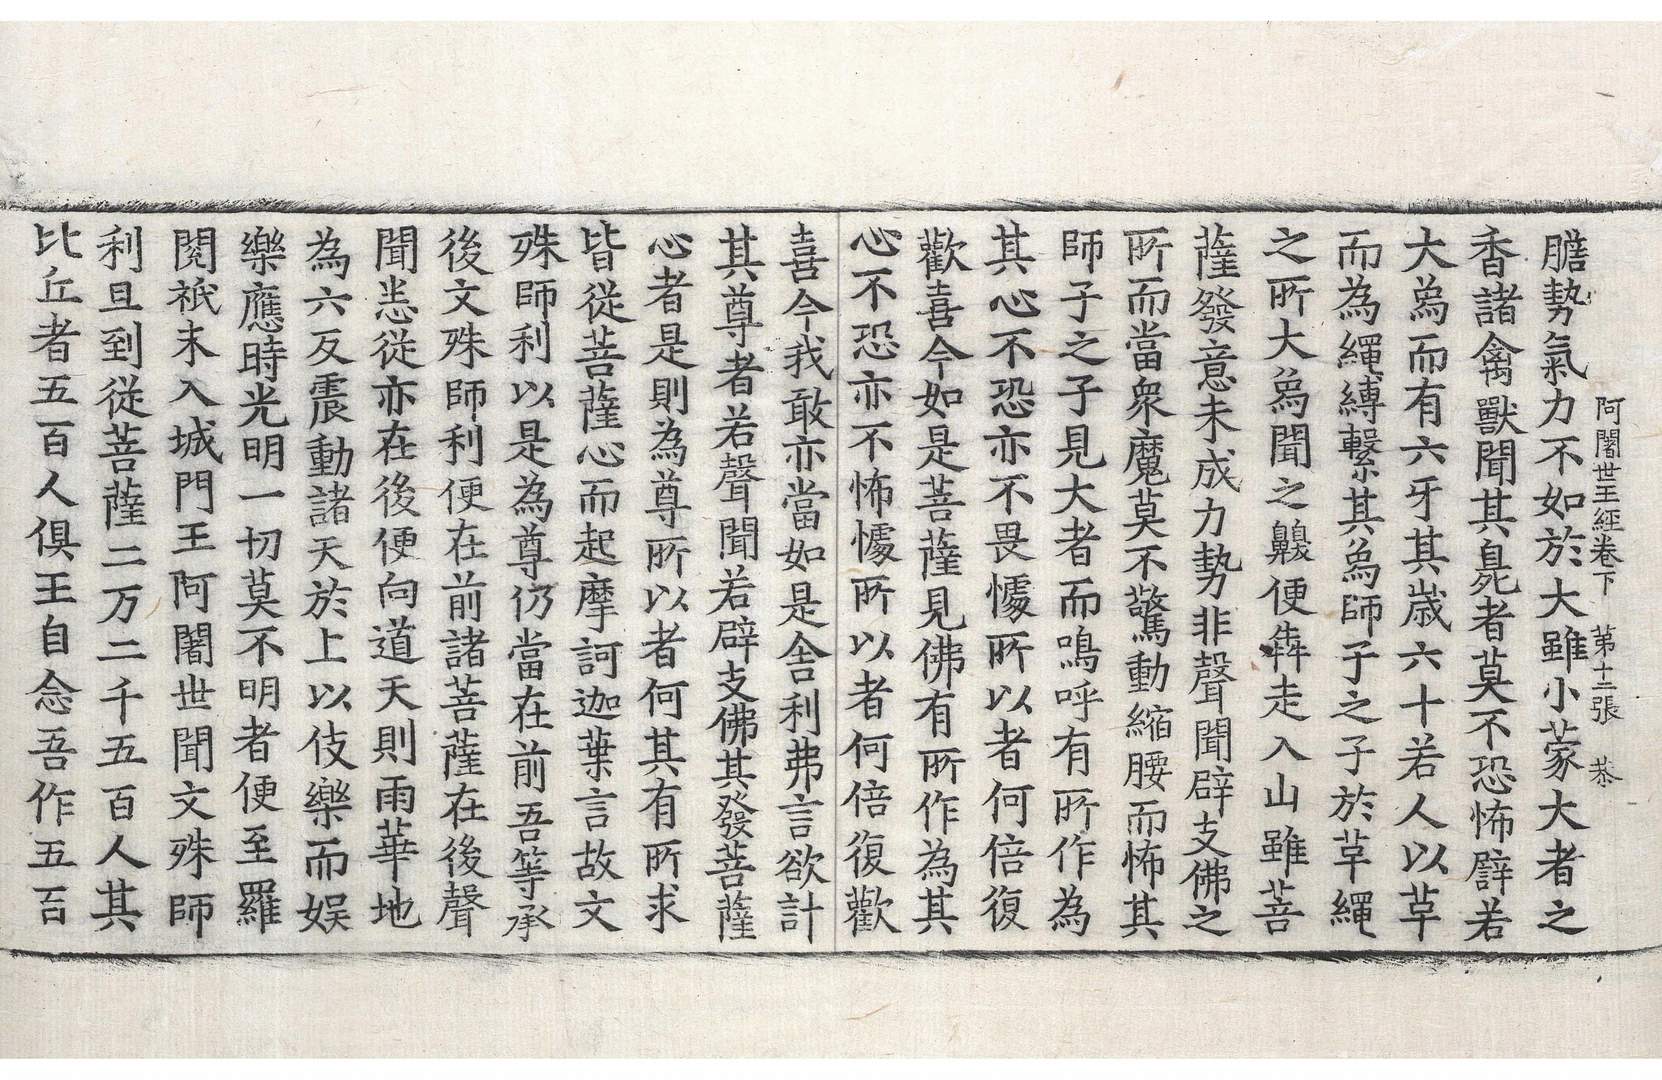 阿闍世王經卷下 第十二張 恭
膽勢氣力不如於大雖小蒙大者之
香諸禽獸聞其臰者莫不恐怖譬若
大象而有六牙其歲六十若人以草
而為繩縛繫其象師子之子於草繩
之所大象聞之齅便犇走入山雖菩
薩發意未成力勢非聲聞辟支佛之
所而當衆魔莫不驚動縮腰而怖其
師子之子見大者而鳴呼有所作為
其心不恐亦不畏懅所以者何倍復
歡喜今如是菩薩見佛有所作為其
心不恐亦不怖懅所以者何倍復歡
喜今我敢亦當如是舍利弗言欲計
其尊者若聲聞若辟支佛其發菩薩
心者是則為尊所以者何其有所求
皆從菩薩心而起摩訶迦葉言故文
殊師利以是為尊仍當在前吾等承
後文殊師利便在前諸菩薩在後聲
聞悉從亦在後便向道天則雨華地
為六反震動諸天於上以伎樂而娛
樂應時光明一切莫不明者便至羅
閱祇末入城門王阿闍世聞文殊師
利旦到從菩薩二万二千五百人其
比丘者五百人俱王自念吾作五百